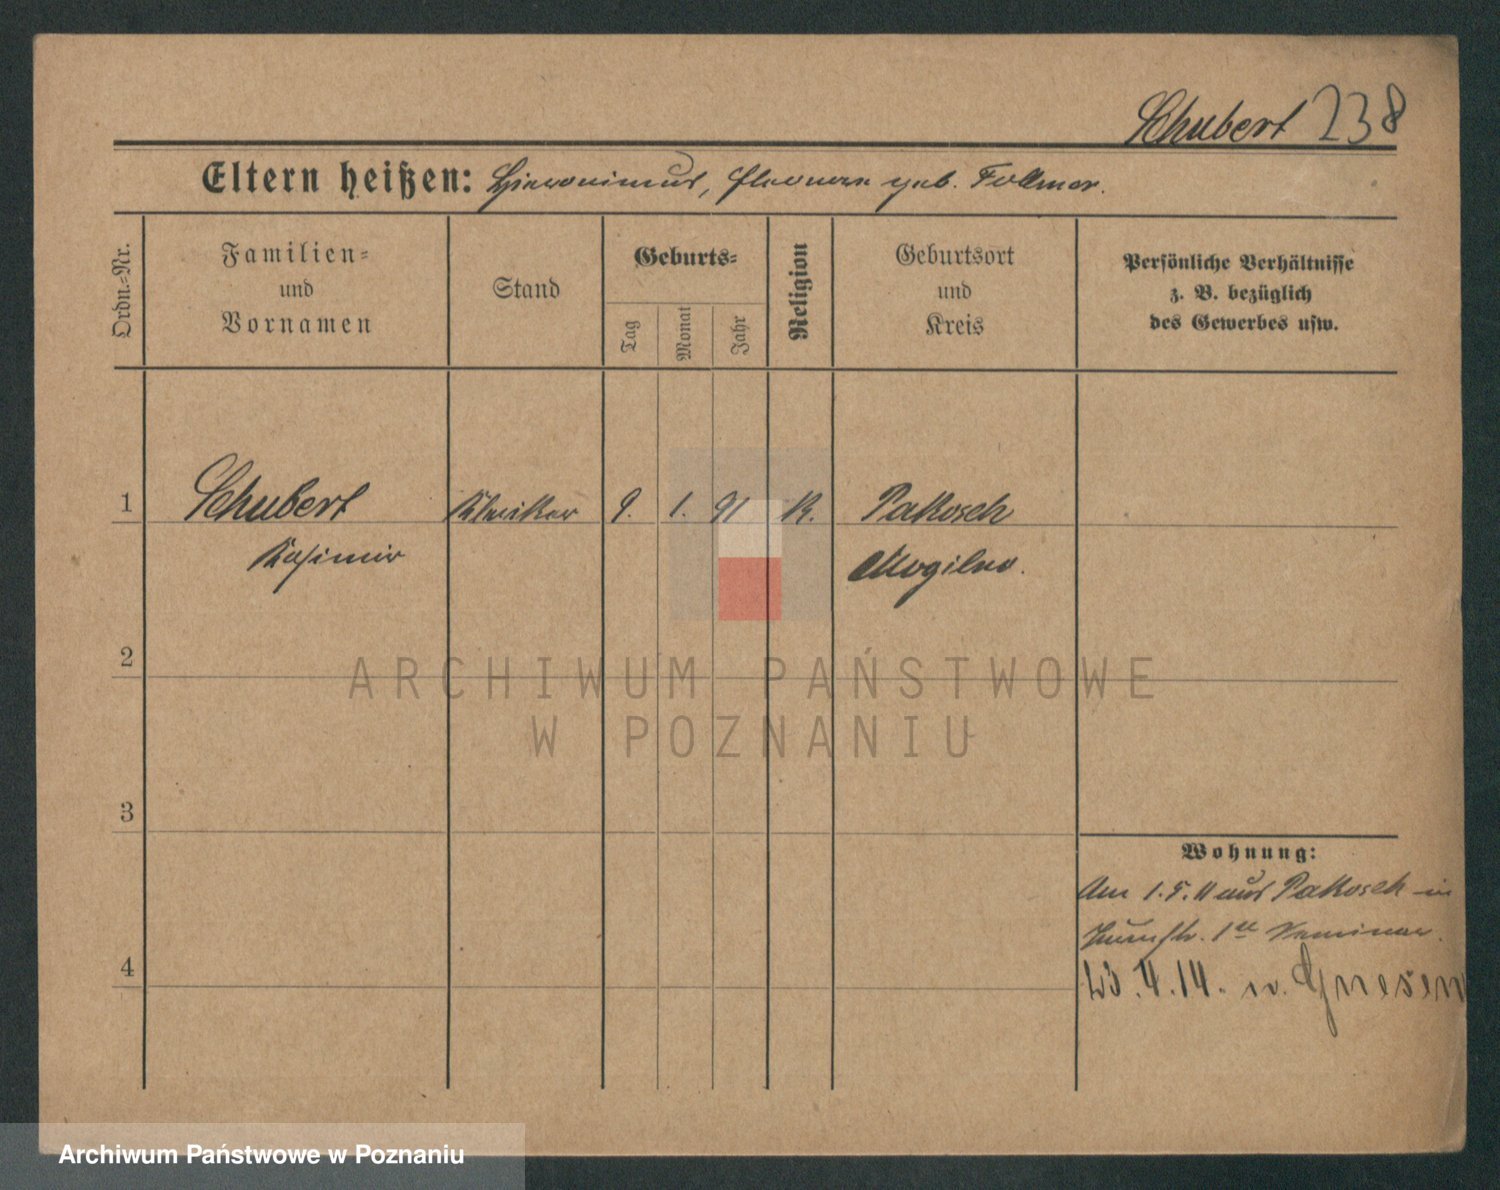 Schubert 238
Eltern heißen: Hieronimus, Eleonore geb. Follmer.
Ordn.-Nr.
Familien-
und
Vornamen
Stand
Geburts-
Tag
Monat
Jahr
Religion
Geburtsort
und
Kreis
Persönliche Verhältnisse
z. B. bezüglich
des Gewerbes usw.
1
Schubert
Kasimir
Kleriker
9.
1.
91
K.
Pakosch
Mogilno.
2
3
4
Wohnung:
Am 1.5.11 aus Pakosch in
Seminar.
23.4.14. n. Gnesen
ARCHIWUM PAŃSTWOWE
W POZNANIU
Archiwum Państwowe w Poznaniu